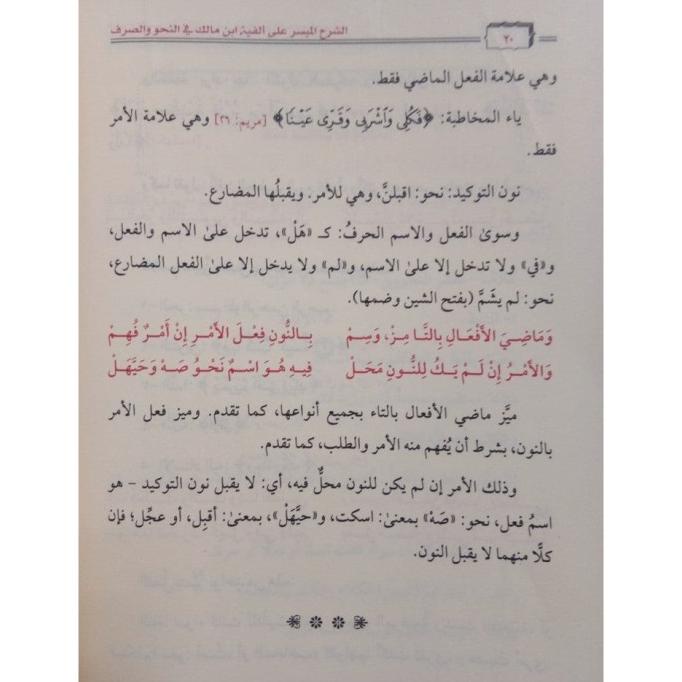 ٢٠
الشرح الميسر على ألفية ابن مالك في النحو والصرف
وهي علامة الفعل الماضي فقط.
ياء المخاطبة: ﴿فَكُلِي وَٱشْرَبِي وَقَرِّي عَيْنًا﴾ [مريم: ٢٦] وهي علامة الأمر
فقط.
نون التوكيد: نحو: اقبلنَّ، وهي للأمر. ويقبلُها المضارع.
وسوىٰ الفعل والاسم الحرفُ: كـ «هَلْ»، تدخل علىٰ الاسم والفعل،
و«في» ولا تدخل إلا علىٰ الاسم، و«لم» ولا يدخل إلا علىٰ الفعل المضارع،
نحو: لم يشَمَّ (بفتح الشين وضمها).
وَمَاضِيَ الأَفْعَالِ بِالتَّا مِزْ، وَسِمْ بِالنُّونِ فِعْلَ الأَمْرِ إِنْ أَمْرٌ فُهِمْ
وَالأَمْرُ إِنْ لَمْ يَكُ لِلنُّونِ مَحَلْ فِيهِ هُوَ اسْمٌ نَحْوُ صَهْ وَحَيَّهَلْ
ميَّز ماضي الأفعال بالتاء بجميع أنواعها، كما تقدم. وميز فعل الأمر
بالنون، بشرط أن يُفهم منه الأمر والطلب، كما تقدم.
وذلك الأمر إن لم يكن للنون محلٌّ فيه، أي: لا يقبل نون التوكيد - هو
اسمُ فعل، نحو: «صَهْ» بمعنىٰ: اسكت، و«حيَّهَلْ»، بمعنىٰ: أقبِل، أو عجِّل؛ فإن
كلًّا منهما لا يقبل النون.